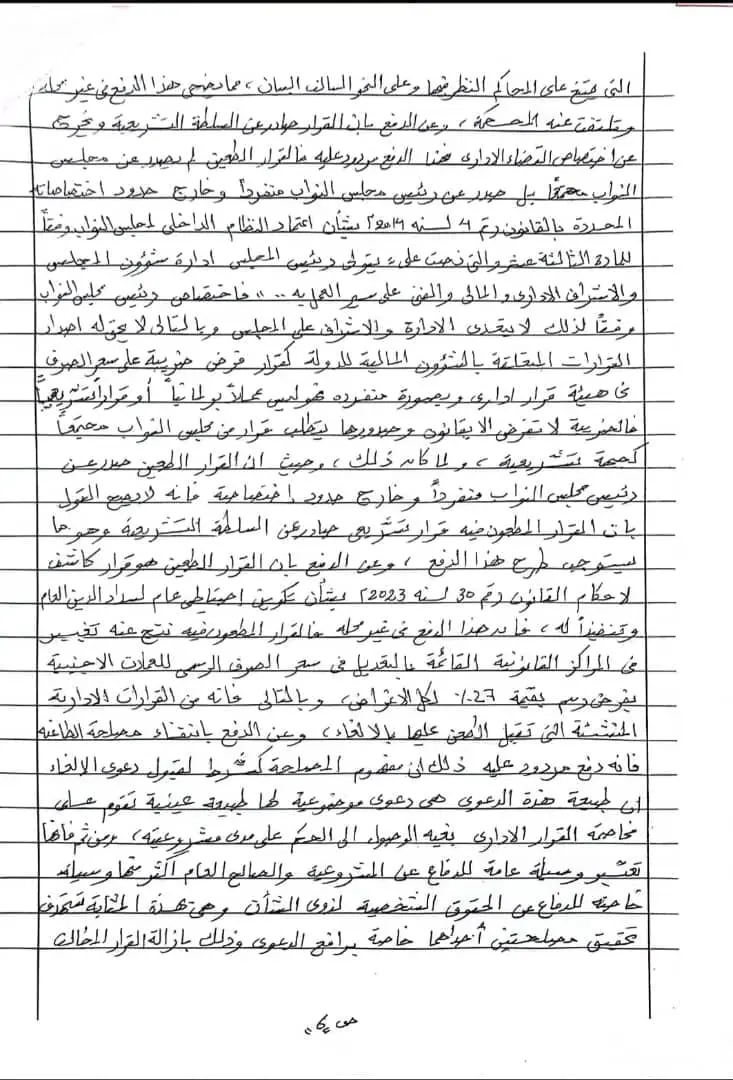 التى يمتنع على المحاكم النظر فيها وعلى النحو السالف البيان ، مما يضحى هذا الدفع فى غير محله
وتلتفت عنه المحكمة ، وعن الدفع بان القرار صادر عن السلطة التشريعية ويخرج
عن اختصاص القضاء الادارى فهذا الدفع مردود عليه فالقرار الطعين لم يصدر عن مجلس
النواب مجتمعاً بل صدر عن رئيس مجلس النواب منفرداً وخارج حدود اختصاصاته
المحددة بالقانون رقم 4 لسنه 2014 بشأن اعتماد النظام الداخلى لمجلس النواب وفقاً
للمادة الثالثة عشر والتى نصت على " يتولى رئيس المجلس ادارة شئوون المجلس
والاشراف الادارى والمالى والفنى على سير العمل به .. " فاختصاص رئيس مجلس النواب
وفقاً لذلك لا يتعدى الادارة والاشراف على المجلس وبالتالى لا يخوله اصدار
القرارات المتعلقة بالشئوون المالية للدولة كقرار فرض ضريبة على سعر الصرف
فى هيئة قرار ادارى وبصورة منفرده فهو ليس عملاً برلمانياً أو قراراً تشريعياً
فالضريبة لا تفرض الا بقانون وصدورها يتطلب قرار من مجلس النواب مجتمعاً
كجهة تشريعية ، ولما كان ذلك ، وحيث ان القرار الطعين صدر عن
رئيس مجلس النواب منفرداً وخارج حدود اختصاصه فانه لا يصح القول
بان القرار المطعون فيه قرار تشريعى صادر عن السلطة التشريعية وهو ما
يستوجب طرح هذا الدفع ، وعن الدفع بان القرار الطعين هو قرار كاشف
لاحكام القانون رقم 30 لسنه 2023 بشأن تكوين احتياطى عام لسداد الدين العام
وتنفيذاً له ، فان هذا الدفع فى غير محله فالقرار المطعون فيه نتج عنه تغيير
فى المراكز القانونية القائمة بالتعديل فى سعر الصرف الرسمى للعملات الاجنبية
بفرض رسم بقيمة 27٪ لكل الاغراض ، وبالتالى فانه من القرارات الادارية
المنشئة التى تقبل الطعن عليها بالالغاء ، وعن الدفع بانتفاء مصلحة الطاعنه
فانه دفع مردود عليه ذلك ان مفهوم المصلحة كشرط لقبول دعوى الإلغاء
ان طبيعة هذه الدعوى هى دعوى موضوعية لها طبيعة عينية تقوم على
مخاصمة القرار الادارى بغيه الوصول الى الحكم على مدى مشروعيته ، ومن ثم فانها
تعتبر وسيلة عامة للدفاع عن المشروعية والصالح العام أكثر منها وسيله
خاصة للدفاع عن الحقوق الشخصية لذوى الشأن وهى بهذه المثابة تستهدف
تحقيق مصلحتين أحداهما خاصة برافع الدعوى وذلك بازالة القرار المخالف
ص "6"